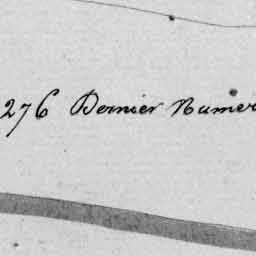 276 Dernier Numer